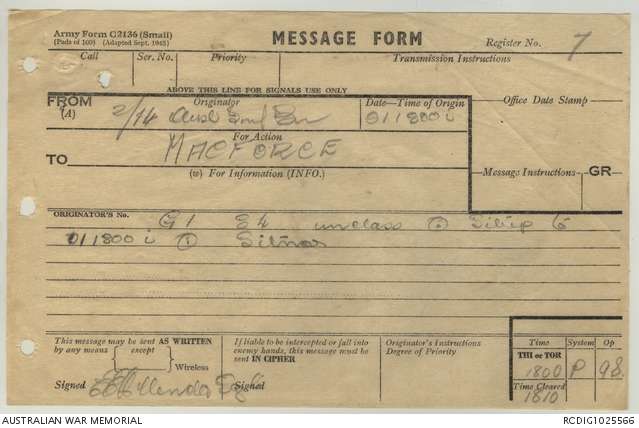 Army Form C2136 (Small)
(Pads of 100) (Adapted Sept. 1943)
MESSAGE FORM
Register No. 7
Call Ser. No. Priority Transmission Instructions
ABOVE THIS LINE FOR SIGNALS USE ONLY
FROM
(A)
Originator
2/14 Aust
Date—Time of Origin
011800 i
Office Date Stamp
For Action
TO MACFORCE
(w) For Information (INFO.)
Message Instructions GR
ORIGINATOR'S No.
G1 unclass Sitrep 6
011800 i Sitnor
This message may be sent AS WRITTEN
by any means except
Wireless
Signed
If liable to be intercepted or fall into
enemy hands, this message must be
sent IN CIPHER
Signed
Originator's Instructions
Degree of Priority
Time System Op
THI or TOR
1800 P
Time Cleared
1810
AUSTRALIAN WAR MEMORIAL
RCDIG1025566